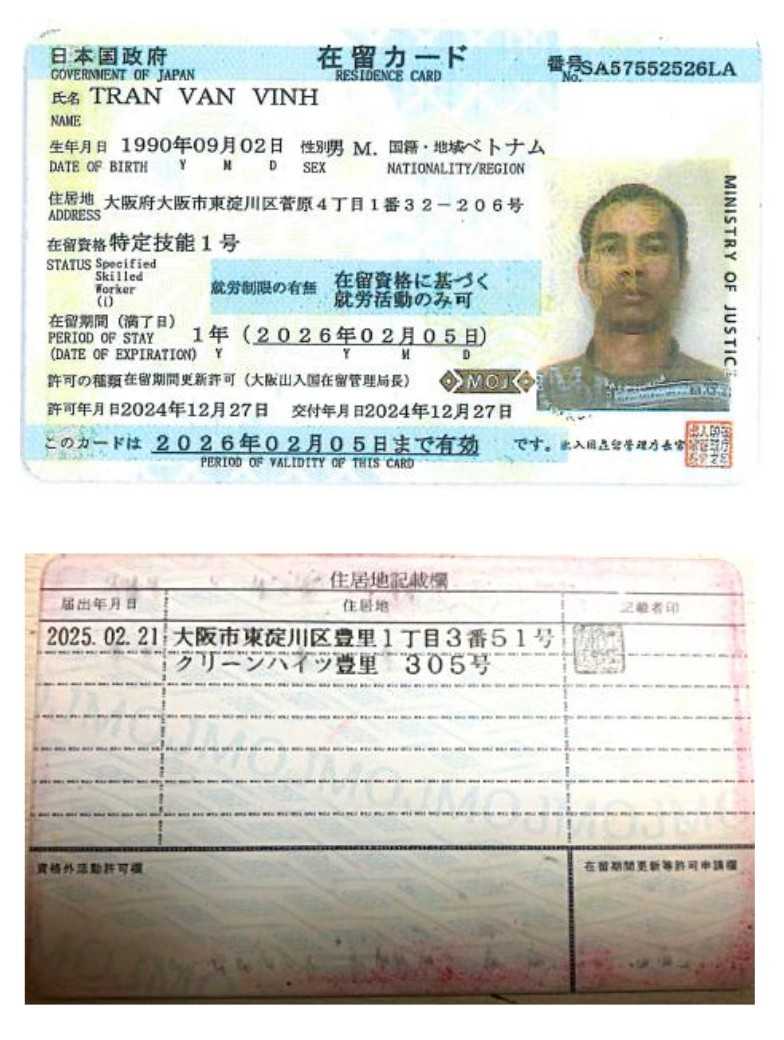 日本国政府 在留カード 番号SA57552526LA
GOVERNMENT OF JAPAN RESIDENCE CARD No.
氏名 TRAN VAN VINH
NAME
生年月日 1990年09月02日 性別男 M. 国籍・地域ベトナム
DATE OF BIRTH Y M D SEX NATIONALITY/REGION
住居地 大阪府大阪市東淀川区菅原4丁目1番32－206号
ADDRESS
在留資格 特定技能1号
STATUS Specified
Skilled
Worker
(i)
就労制限の有無 在留資格に基づく
就労活動のみ可
在留期間(満了日)
PERIOD OF STAY 1年(2026年02月05日)
(DATE OF EXPIRATION) Y Y M D
許可の種類 在留期間更新許可(大阪出入国在留管理局長)
MOJ
許可年月日2024年12月27日 交付年月日2024年12月27日
このカードは 2026年02月05日まで有効 です。
PERIOD OF VALIDITY OF THIS CARD
MINISTRY OF JUSTIC
住居地記載欄
届出年月日 住居地 記載者印
2025.02.21 大阪市東淀川区豊里1丁目3番51号
クリーンハイツ豊里 305号
資格外活動許可欄 在留期間更新等許可申請欄